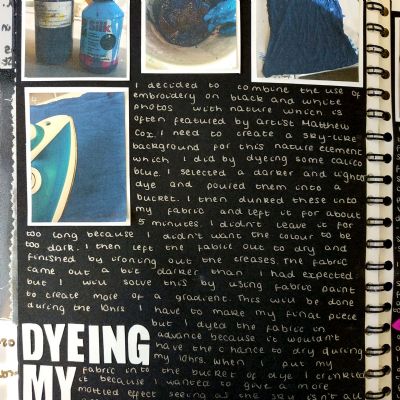 silk
I decided to combine the use of
embroidery on black and white
photos with nature which is
often featured by artist Matthew
Cox. I need to create a sky-like
background for this nature element
which I did by dyeing some calico
blue. I selected a darker and lighter
dye and poured them into a
bucket. I then dunked these into
my fabric and left it for about
5 minutes. I didn't leave it for
too long because I didn't want the colour to be
too dark. I then left the fabric out to dry and
finished by ironing out the creases. The fabric
came out a bit darker than I had expected
but I will solve this by using fabric paint
to create more of a gradient. This will be done
during the 10hrs I have to make my final piece
but I dyed the fabric in
advance because it wouldn't
have the chance to dry during
my 10hrs. When I put my
fabric into the bucket of dye I crinkled
it because I wanted to give a more
mottled effect seeing as the sky isn't all
DYEING
MY